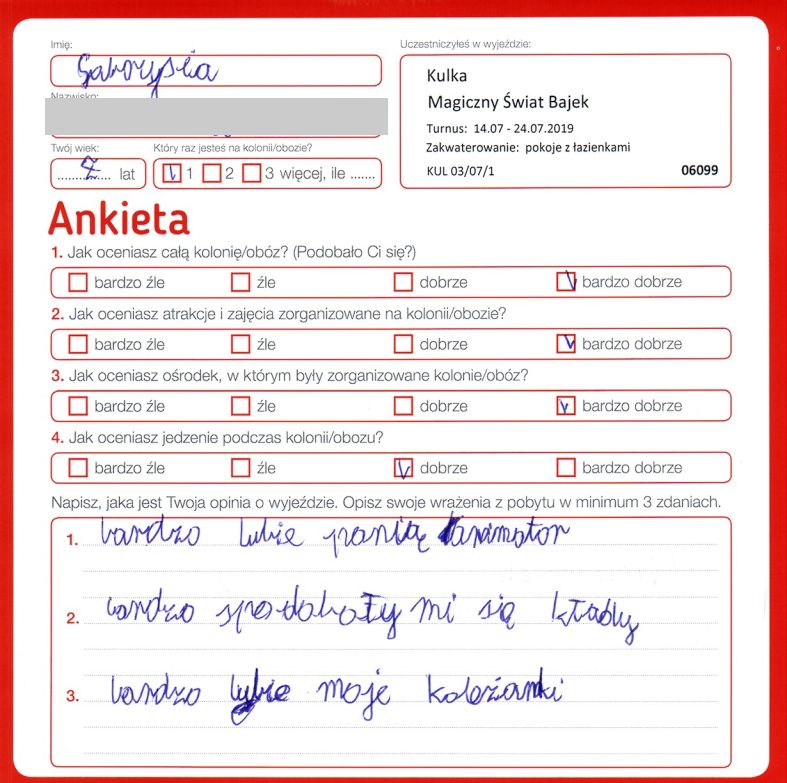 Imię:
Uczestniczyłeś w wyjeździe:
Gabrysia
Kulka
Nazwisko:
Magiczny Świat Bajek
Turnus: 14.07 - 24.07.2019
Twój wiek:
Który raz jesteś na kolonii/obozie?
Zakwaterowanie: pokoje z łazienkami
7 lat
1 2 3 więcej, ile .......
KUL 03/07/1 06099
Ankieta
1. Jak oceniasz całą kolonię/obóz? (Podobało Ci się?)
bardzo źle źle dobrze bardzo dobrze
2. Jak oceniasz atrakcje i zajęcia zorganizowane na kolonii/obozie?
bardzo źle źle dobrze bardzo dobrze
3. Jak oceniasz ośrodek, w którym były zorganizowane kolonie/obóz?
bardzo źle źle dobrze bardzo dobrze
4. Jak oceniasz jedzenie podczas kolonii/obozu?
bardzo źle źle dobrze bardzo dobrze
Napisz, jaka jest Twoja opinia o wyjeździe. Opisz swoje wrażenia z pobytu w minimum 3 zdaniach.
1. bardzo lubie panią
2. bardzo spodobały mi się
3. bardzo lubie moje koleżanki